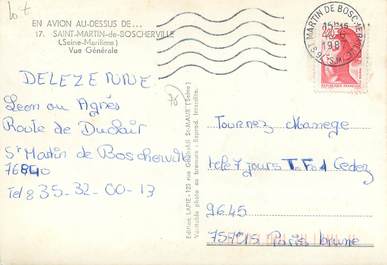 EN AVION AU-DESSUS DE...
17. SAINT-MARTIN-de-BOSCHERVILLE
(Seine-Maritime)
Vue Générale
DELEZENNE
Leon ou Agnès
Route de Duclair
St Martin de Boscherville
76840
Tel 35-32-00-13
76
Edition LAPIE - 123 rue Général St-MAUR (Seine)
Véritable photo au bromure - Reprod. Interdite.
ST MARTIN DE BOSCHER
198
2,20
Tournez Manege
tele 7 jours T.F.1 Cedez
9645
75 Paris brune